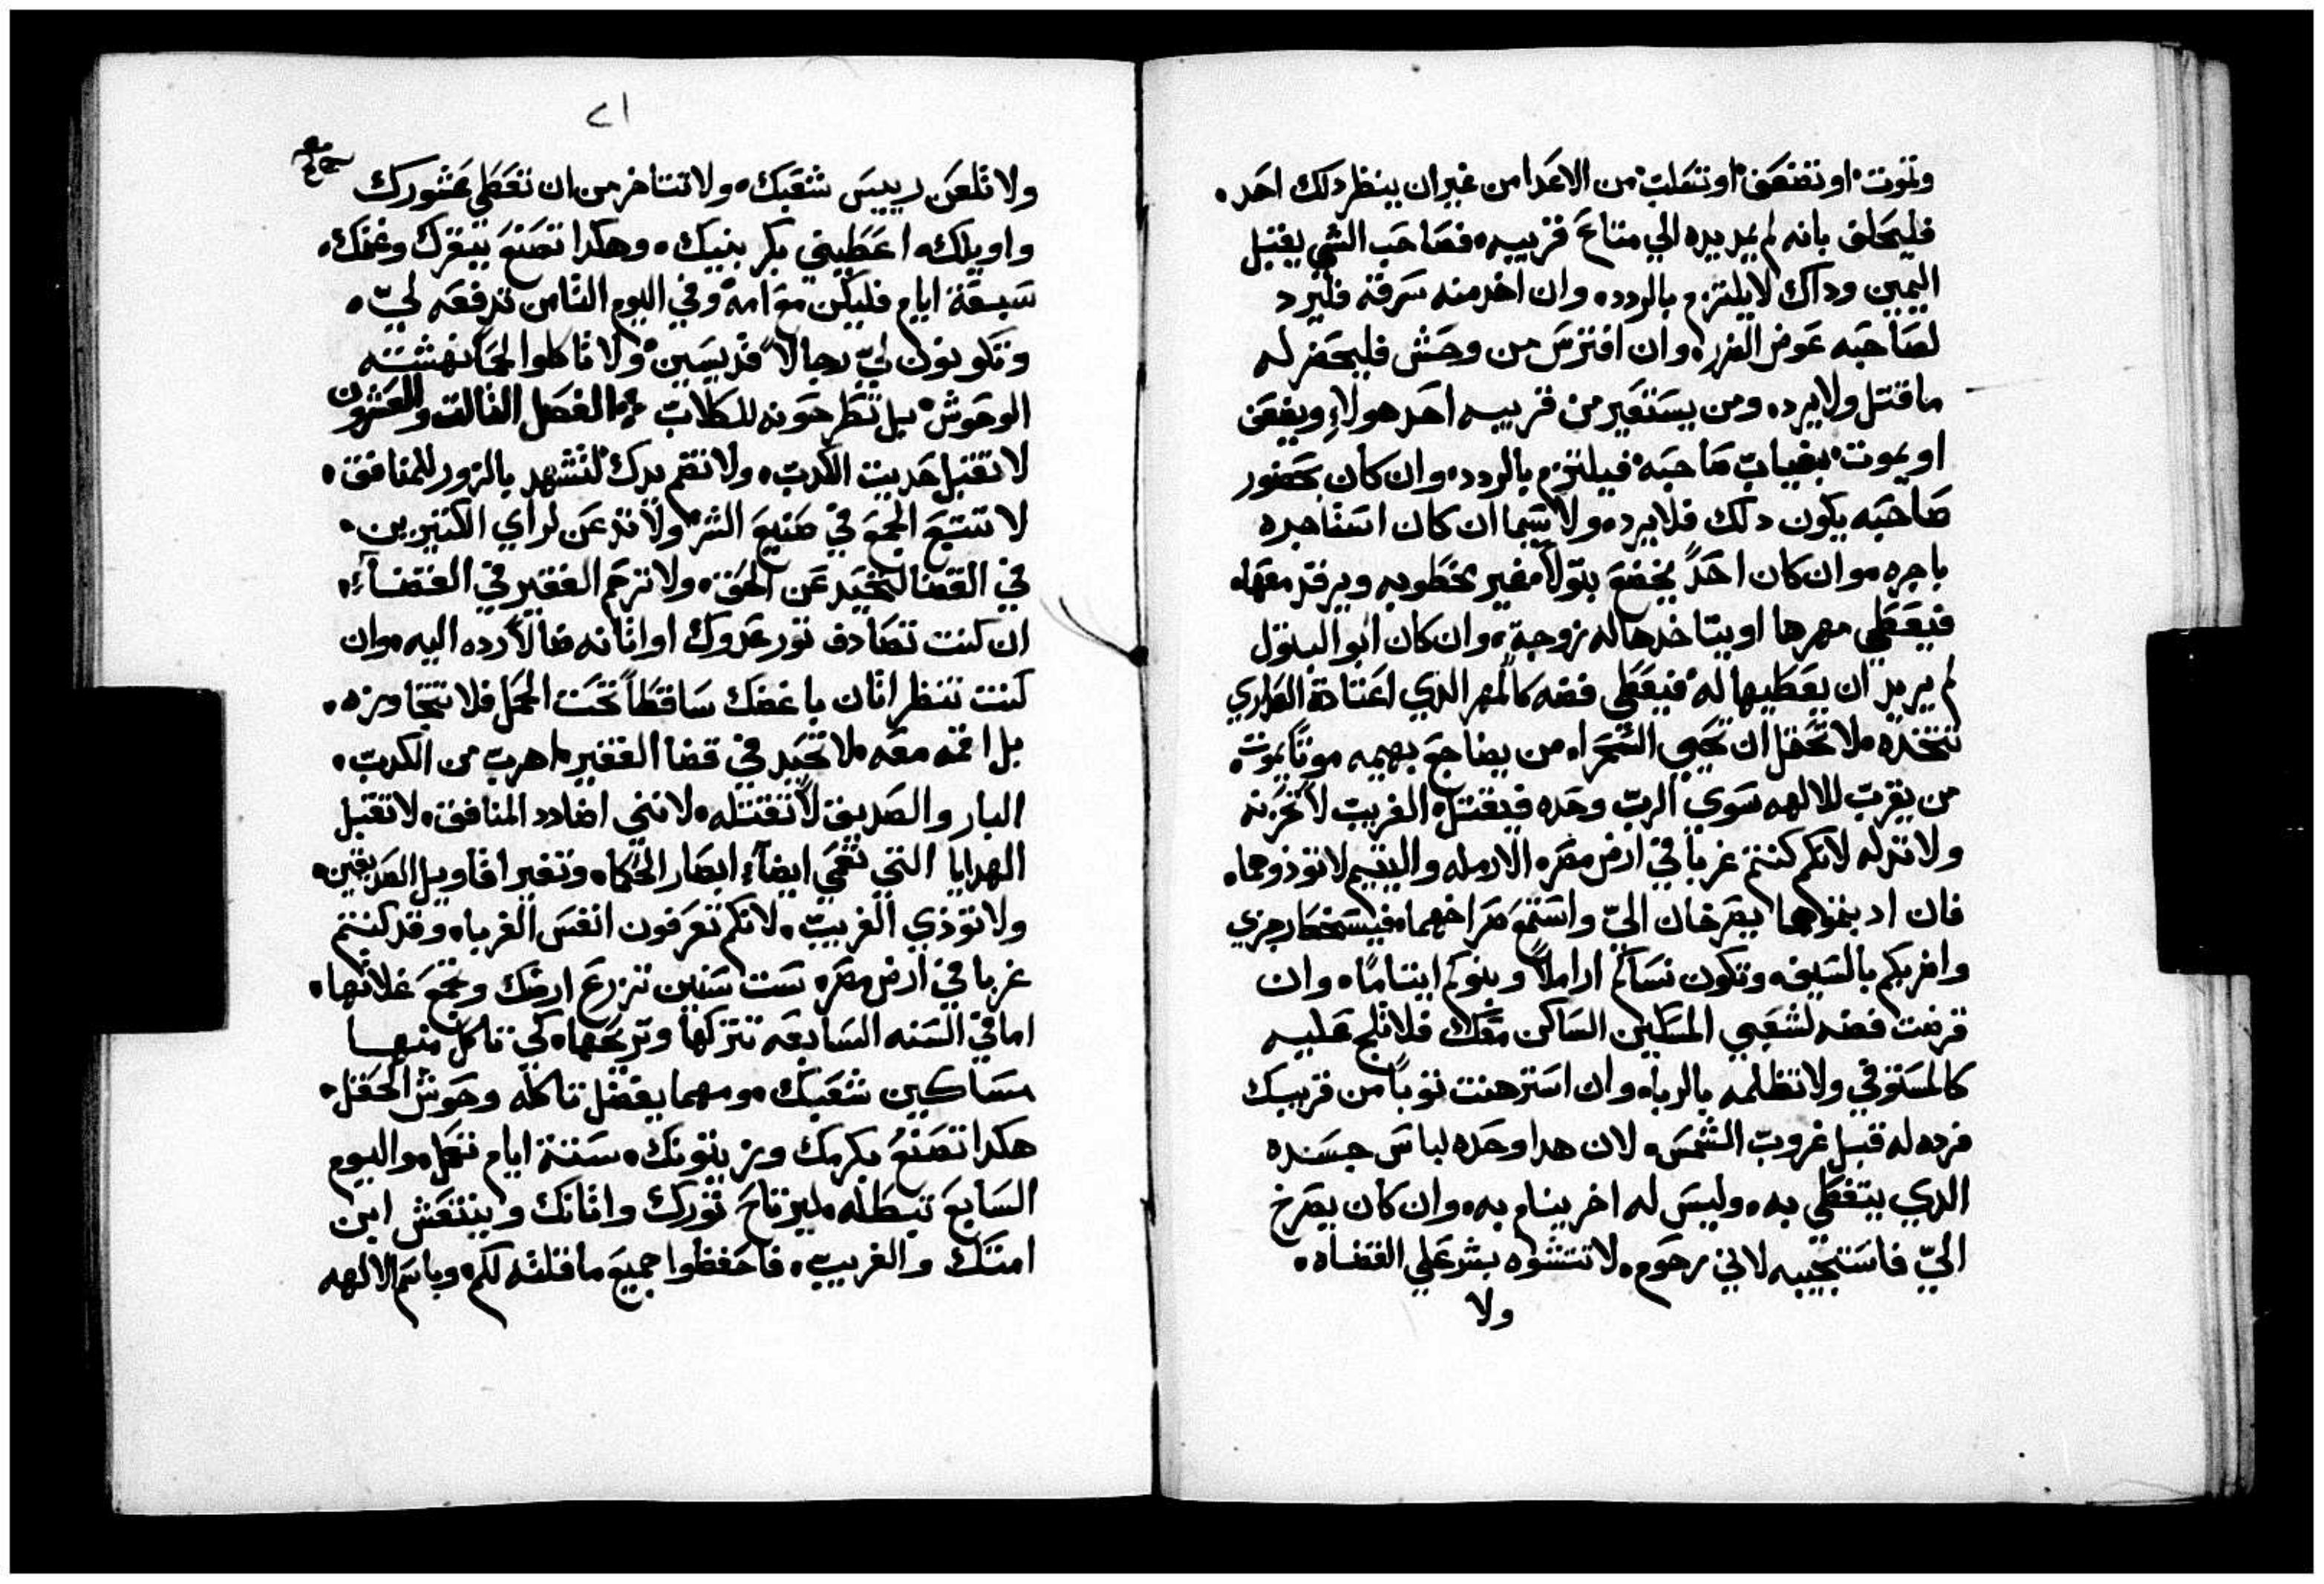 وتموت او تضعف او تنقلب من الاعدا من غير ان ينظر دلك احد.
فليحلف بانه لم يمد يده الي متاع قريبه. فصاحب الشي يقبل
اليمين وداك لا يلتزم بالردد. وان اخد منه سرقة فليرد
لصاحبه عوض الضرر. وان افترس من وحش فليحضر له
ما قتل ولا يرد. ومن يستعير من قريبه احد هولاء ويضعف
او يموت بغياب صاحبه فيلتزم بالردد. وان كان بحضور
صاحبه يكون دلك فلا يرد. ولا سيما ان كان استاجره
باجره. وان كان احدً يخضع بتولاً غير مخطوبه ويرقد معها.
فيعطي مهرها او يتاخدها له زوجة. وان كان ابو البتول
لم يريد ان يعطيها له فيعطي فضه كالمهر الدي اعتادة العداري
تتخده. لا تحفل ان تحيي السحرا. من يضاجع بهيمه موتاً يموت.
من يقرب للالهه سوي الرب وحده فيقتل. الغريب لا تحزنه
ولا تدله لانكم كنتم غربا في ارض مصر. الارمله واليتيم لا توذوهما.
فان اديتموهما يصرخان اليّ واستمع صراخهما. فيسخط رجزي
واضربكم بالسيف. وتكون نساكم اراملاً وبنوكم ايتاماً. وان
قرضت فضه لشعبي المسكين الساكن معك فلا تلج عليه
كالمستوفي ولا تظلمه بالربا. وان استرهنت توباً من قريبك
فرده له قبل غروب الشمس. لان هدا وحده لباس جسده
الدي يتغطي به. وليس له اخر ينام به. وان كان يصرخ
اليّ فاستجيبه لاني رحوم. لا تتشوه بشر علي القضاه.
ولا
٢١
ولا تلعن رييس شعبك. ولا تتاخر من ان تعطي عشورك
واويلك. اعطيني بكر بنيك. وهكدا تصنع ببقرك وغنمك.
سبعة ايام فليكن مع امه وفي اليوم التامن تدفعه ليّ.
وتكونون ليّ رجالاً قديسين ولا تاكلوا لحماً نهشته
الوحوش بل تطرحونه للكلاب. الفصل التالت والعشرون
لا تقبل حديت الكدب. ولا تضم يدك لتشهد بالزور للمنافق.
لا تتبع الجمع في صنيع الشر ولا تدعن لراي الكتيرين.
في القضا لتحيد عن الحق. ولا ترحم الفقير في القضاء.
ان كنت تصادف تور عدوك او اتانه ضالاً رده اليه. وان
كنت تنظر اتان باغضك ساقطاً تحت الحمل فلا تتجاوزه.
بل اقمه معه. لا تحيد في قضا الفقير. اهرب من الكدب.
البار والصديق لا تقتله. لانني اضادد المنافق. لا تقبل
الهدايا التي تعمي ايضاء ابصار الحكما. وتغير اقاويل الصديقين.
ولا توذي الغريب. لانكم تعرفون انفس الغربا. وقد كنتم
غربا في ارض مصر. ست سنين تزرع ارضك وتجمع غلاتها.
اما في السنه السابعه تتركها وتريحها. كي تاكل منها
مساكين شعبك. ومهما يفضل تاكله وحوش الحقل.
هكدا تصنع بكرمك وزيتونك. ستة ايام تعمل. واليوم
السابع تبطله. ليرتاح تورك واتانك وينتعش ابن
امتك والغريب. فاحفظوا جميع ما قلته لكم. وباسم الالهه